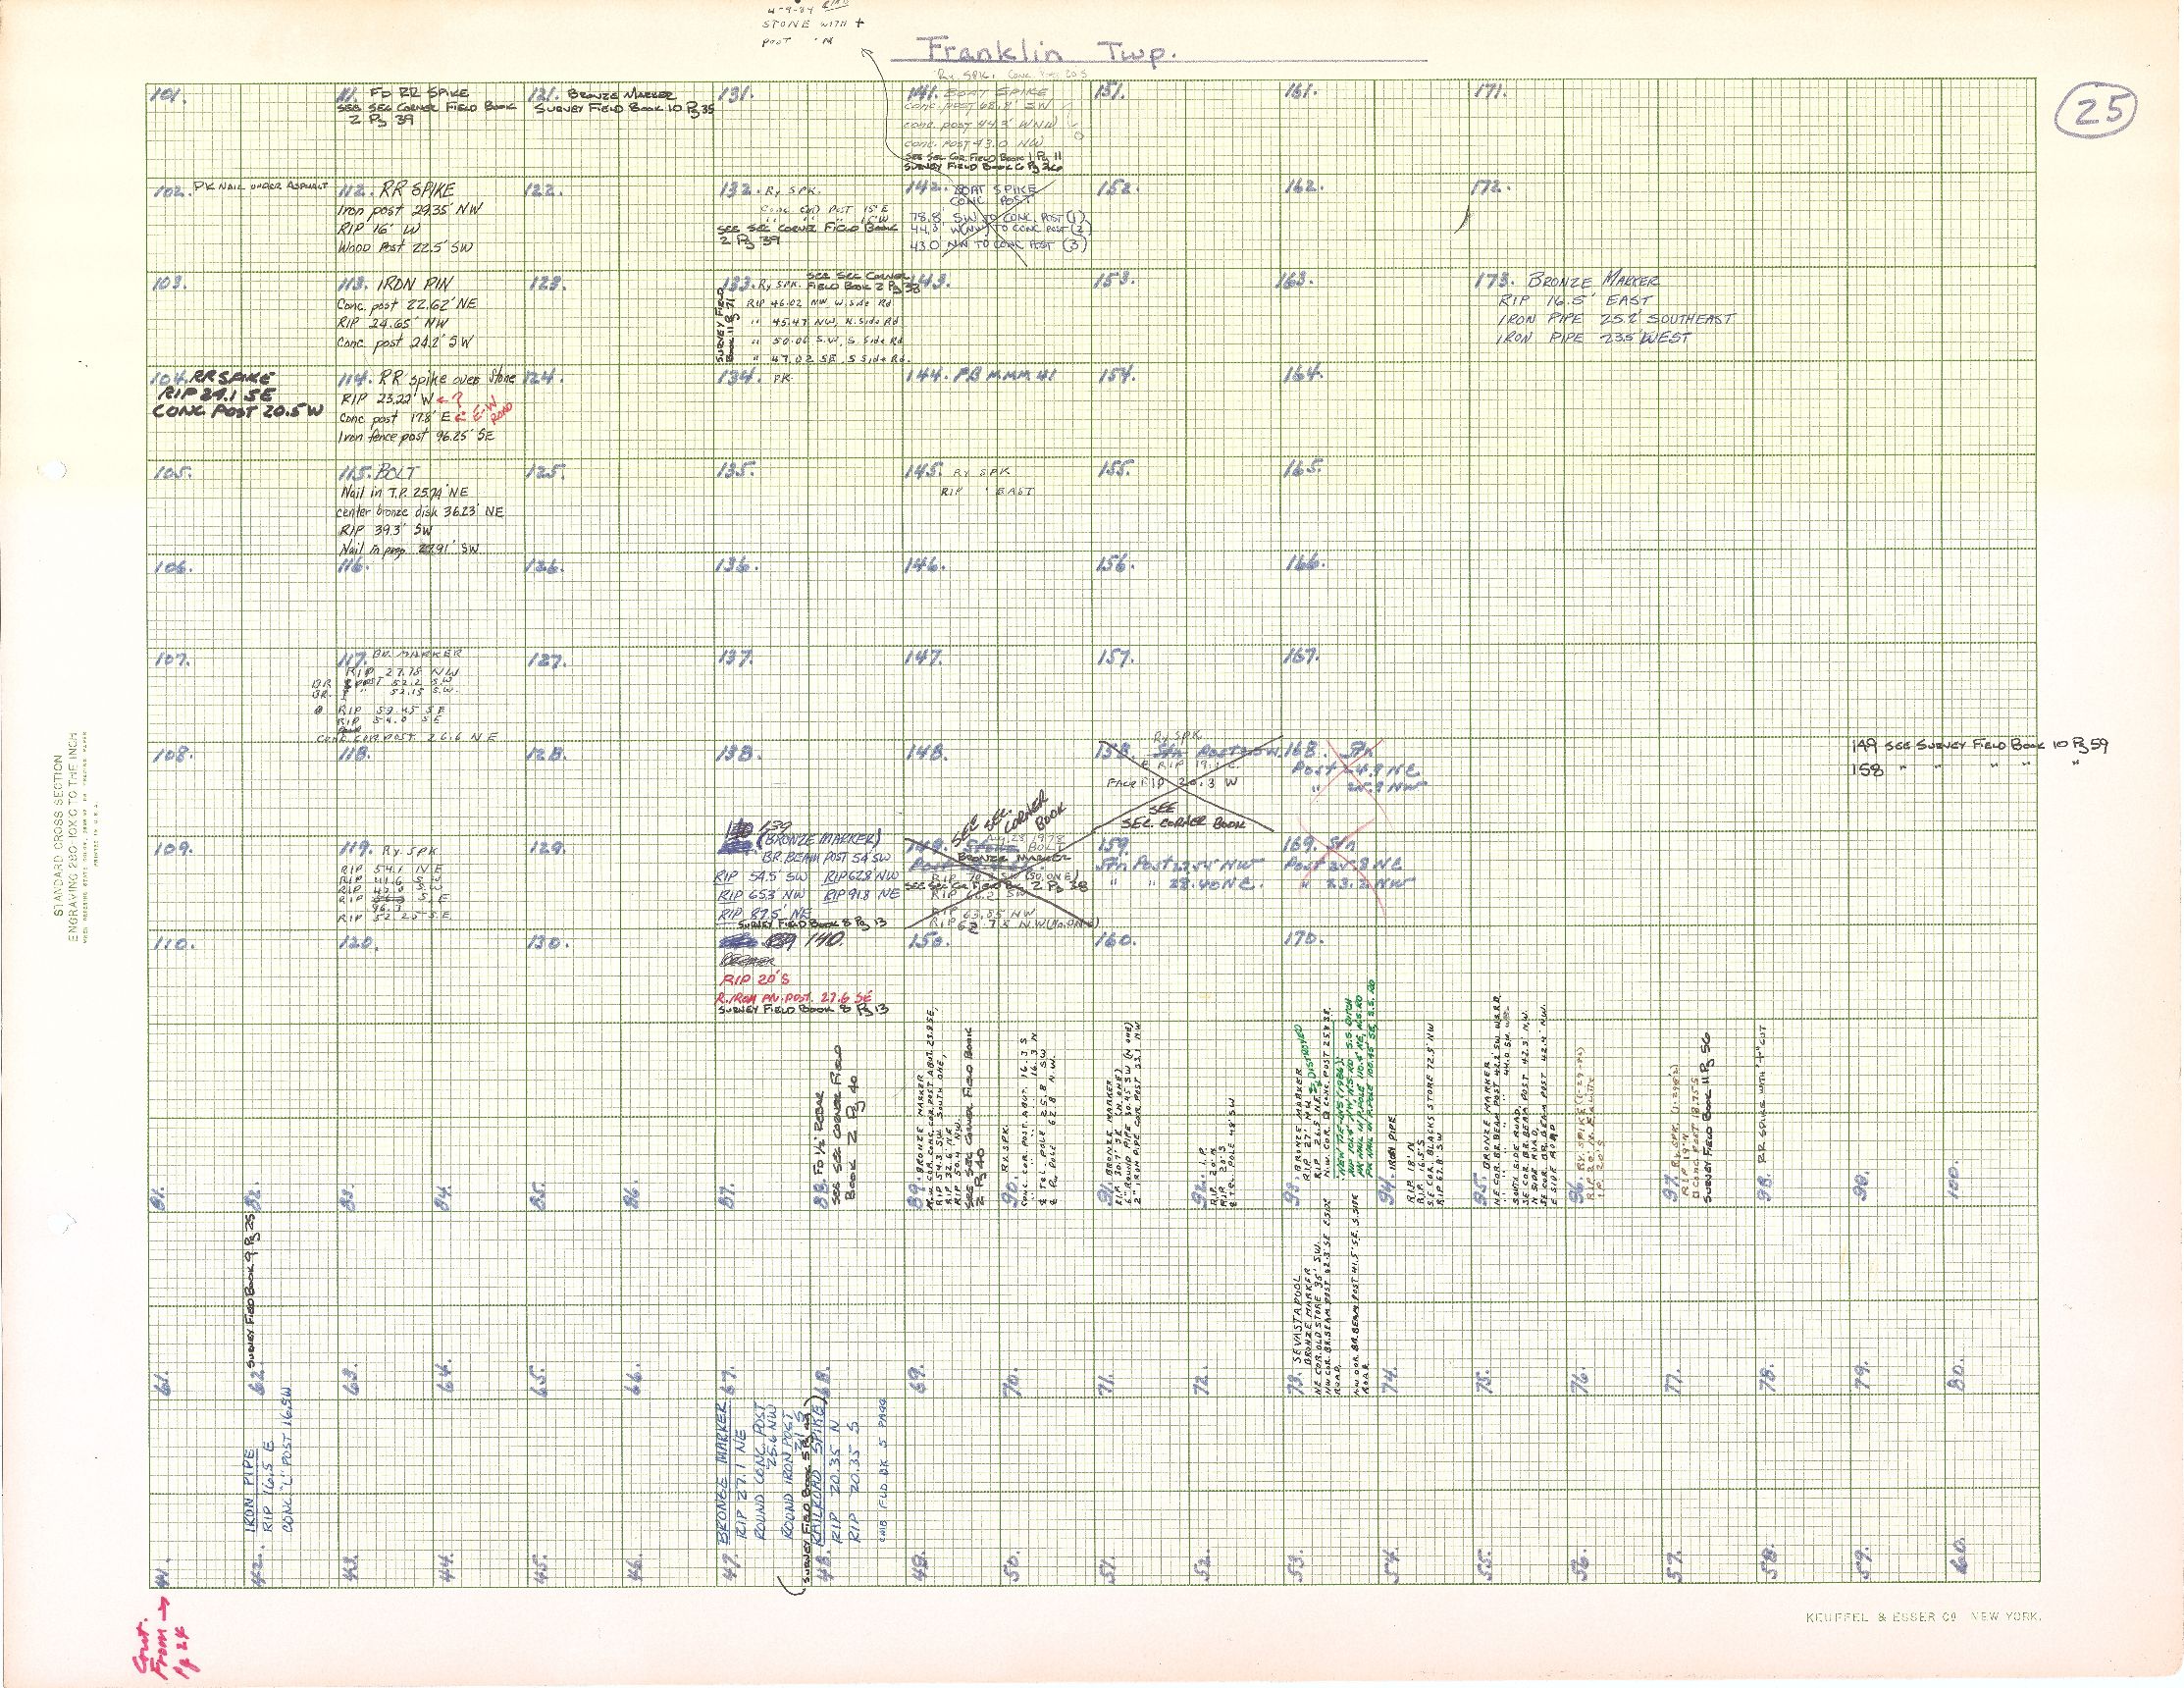 4-9-84
STONE WITH +
POST
Franklin Twp.
25
Ry. SPK.
101.
111. FD RR SPIKE
SEE SEC CORNER FIELD BOOK
2 Pg 39
121. BRONZE MARKER
SURVEY FIELD BOOK 10 Pg 35
131.
141. BOAT SPIKE
CONC. POST 68.8' SW
CONC. POST 44.3' WNW
CONC. POST 43.0 NW
SEE SEC COR FIELD BOOK 1 Pg 11
SURVEY FIELD BOOK 6 Pg 36
151.
161.
171.
102. PK NAIL UNDER ASPHALT
112. RR SPIKE
Iron post 29.35' NW
RIP 16' W
Wood Post 22.5' SW
122.
132. Ry SPK.
CONC COR POST 15' E
" " " 15' W
SEE SEC CORNER FIELD BOOK
2 Pg 39
142. BOAT SPIKE
CONC POST
78.8' SW TO CONC. POST (1)
44.3' W(NW) TO CONC POST (2)
43.0 NW TO CONC POST (3)
152.
162.
172.
103.
113. IRON PIN
Conc. post 22.62' NE
RIP 24.65' NW
Conc. post 24.2' SW
123.
133. Ry SPK.
SEE SEC CORNER
FIELD BOOK 2 Pg 38
SURVEY FIELD
BOOK 11 Pg 71
RIP 46.02 NW W. Side Rd
" 45.47 NW, N. Side Rd
" 50.06 S.W, S. Side Rd
" 47.02 SE, S Side Rd.
143.
153.
163.
173. BRONZE MARKER
RIP 16.5' EAST
IRON PIPE 25.2' SOUTHEAST
IRON PIPE 23.5' WEST
104. RR SPIKE
RIP 24.1 SE
CONC. POST 20.5 W
114. RR spike over stone
RIP 23.22' W ← ?
Conc post 17.8' E ← E-W ROAD
Iron fence post 96.25' SE
124.
134. PK
144. FB M.M.M. 41
154.
164.
105.
115. BOLT
Nail in T.P. 25.74' NE
center bronze disk 36.23' NE
RIP 39.3' SW
Nail in prop 27.91' SW
125.
135.
145. Ry SPK
RIP ' EAST
155.
165.
106.
116.
126.
136.
146.
156.
166.
107.
117. BR. MARKER
RIP 27.18 NW
BR POST 52.2 S.W
BR. I " 52.15 S.W.
RIP 59.45 S E
RIP 54.0 S E
CONC COR POST 26.6 NE
127.
137.
147.
157.
167.
108.
118.
128.
138.
148.
158.
Ry SPK
FACE RIP 20.3 W
SEE
SEC. CORNER BOOK
168. Stn
Post 24.9 NE
" 25.2 NW
149 SEE SURVEY FIELD BOOK 10 Pg 59
158 " " " " "
109.
119. Ry. SPK
RIP 54.1 N E
RIP 41.6 S W
RIP 47.0 S.W
RIP 96.3 S.E
RIP 52.25 S.E
129.
139
(BRONZE MARKER)
BR. BEAM POST 54 SW
RIP 54.5' SW RIP 62.8 NW
RIP 65.3' NW RIP 91.8 NE
RIP 87.5' NE
SURVEY FIELD BOOK 8 Pg 13
149.
SEE SEC. CORNER BOOK
BRONZE MARKER
SEE SEC COR FIELD BK 2 Pg 38
RIP 63.85 NW
159.
Stn Post 27.54 NW
" " 28.40 NE.
169. Stn
Post 25.8 NE
" 23.2 NW
110.
120.
130.
140.
RIP 20' S
R. IRON PN. POST. 27.6 SE
SURVEY FIELD BOOK 8 Pg 13
150.
160.
170.
81.
82.
83.
84.
85.
86.
87.
88. FD 1/2" REBAR
SEE SEC CORNER FIELD
BOOK 2 Pg 40
89. BRONZE MARKER
N.W. COR. CONC. COR. POST ABUT. 23.8 SE,
RIP 54.3 SW SOUTH ONE,
RIP 32.6' NE,
RIP 50.4 NW.
SEE SEC CORNER FIELD BOOK
2 Pg 40
90. Ry. SPK.
CONC. COR. POST. ABUT. 16.3 S
" " " " 16.3 N
℄ TEL. POLE 25.8 SW
℄ P. POLE 62.8 N.W.
91. BRONZE MARKER
RIP 30.7' SE (N. ONE)
6" ROUND PIPE 30.45 SW (N ONE)
2" IRON PIPE COR POST 33.1 NW
92. I.P.
RIP 20' N
RIP 20' S
℄ TR. POLE 48' SW
93. BRONZE MARKER
RIP 27' NW
RIP 27.5 NE ← DESTROYED
N.W. COR. CONC. POST 25.8 SE
NEW TIE-INS (1986):
94. IRON PIPE
RIP 18' N
RIP 16.5' S
S.E. COR. BLACKS STORE 72.5' NW
RIP 67.8' SW
95. BRONZE MARKER
NE COR. BR. BEAM POST 42.2' SW W.S.R.D.
SOUTH SIDE ROAD,
SE COR. BR. BEAM POST 42.3' N.W.
N SIDE ROAD,
SE COR. BR. BEAM POST 42.4' N.W.
E SIDE ROAD
96. Ry. SPIKE (1-29-82)
97. Ry. SPK.
RIP 19' N
CONC POST 18.75 S
SURVEY FIELD BOOK 11 Pg 56
98. RR SPIKE WITH "+" CUT
99.
100.
61.
62. SURVEY FIELD BOOK 9 Pg 25
63.
64.
65.
66.
67.
68.
69.
70.
71.
72.
73. SEVASTAPOOL
BRONZE MARKER
NE COR. OLD STORE 35' S.W.
NW COR. BR. BEAM POST 42.3' SE E. SIDE
ROAD,
NW COR. BR. BEAM POST 41.5' SE. S. SIDE
ROAD.
74.
75.
76.
77.
78.
79.
80.
41.
42. IRON PIPE
RIP 16.5 E
CONC "L" POST 16.5 W
43.
44.
45.
46.
47. BRONZE MARKER
RIP 27.1 NE
ROUND CONC. POST
25.6 NW
ROUND IRON POST
SURVEY FIELD BOOK 5
48. RAILROAD SPIKE
RIP 20.35 N
RIP 20.35 S
49.
50.
51.
52.
53.
54.
55.
56.
57.
58.
59.
60.
Cont.
From →
Pg 24
STANDARD CROSS SECTION
KEUFFEL & ESSER CO. NEW YORK.